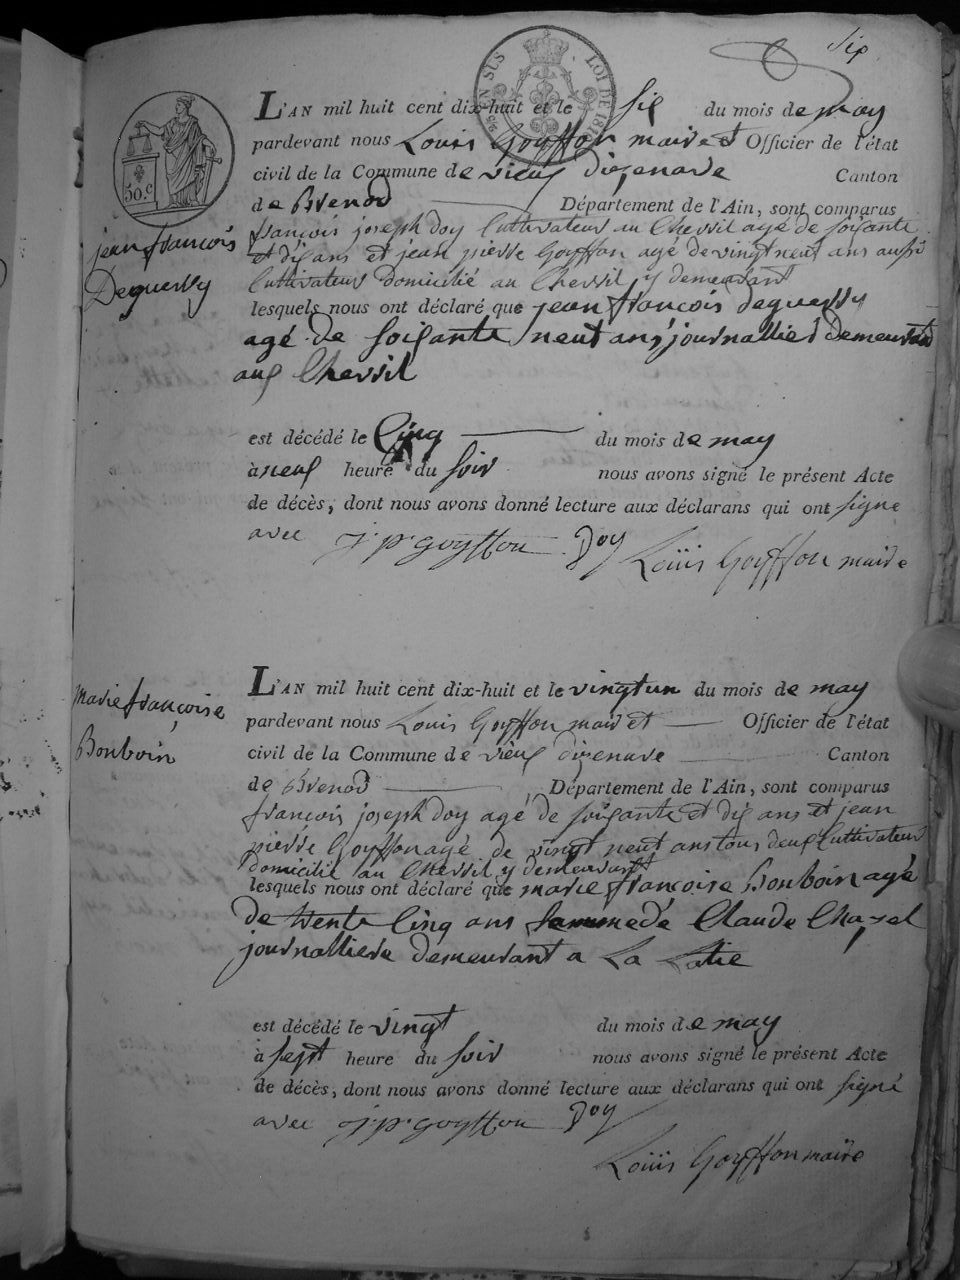 Six
EN SUS
LOI DE 181
50.c
L'AN mil huit cent dix-huit et le six du mois de may
pardevant nous Louis Goyffon maire et Officier de l'état
civil de la Commune de vieux dizenave Canton
de Brenod Département de l'Ain, sont comparus
jean francois
Deguerry
françois joseph doy Cultivateur au Chevril agé de soixante
et dix ans et jean pierre Goyffon agé de vingt neuf ans aussi
Cultivateur domicilié au Chevril y demeurant
lesquels nous ont déclaré que jean francois deguerry
agé de soixante neuf ans journallier demeurant
aux Chevril
est décédé le Cinq du mois de may
à neuf heure du soir nous avons signé le présent Acte
de décès, dont nous avons donné lecture aux déclarans qui ont signe
avec j. p. goyffon Doy Loüis Goyffon maire
Marie françoise
Bonboin
L'AN mil huit cent dix-huit et le vingt un du mois de may
pardevant nous Louis Goyffon maire et Officier de l'état
civil de la Commune de vieux dizenave Canton
de Brenod Département de l'Ain, sont comparus
francois joseph doy agé de soixante et dix ans et jean
pierre Goyffon agé de vingt neuf ans tous deux Cultivateur
domicilié au Chevril y demeurant
lesquels nous ont déclaré que marie françoise Bonboin agé
de trente Cinq ans femme de Claude Chapel
journalliere demeurant a La Latie
est décédé le vingt du mois de may
à sept heure du soir nous avons signé le présent Acte
de décès, dont nous avons donné lecture aux déclarans qui ont signé
avec j. p. goyffon Doy
Loüis Goyffon maire